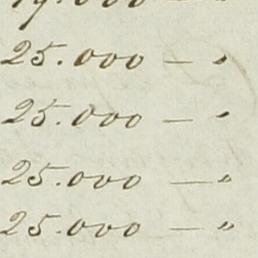 25.000 — "
25.000 — "
25.000 — "
25.000 — "